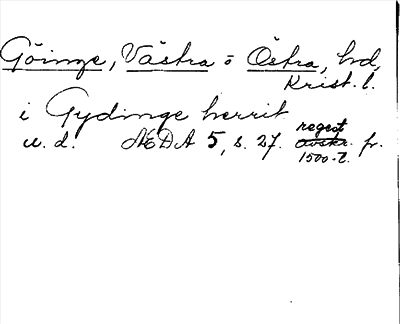 Göinge, Västra o Östra, hd,
Krist. l.
i Gydinge herrit
u. d. ÆDA 5, s. 27. regest avskr. fr.
1500-t.